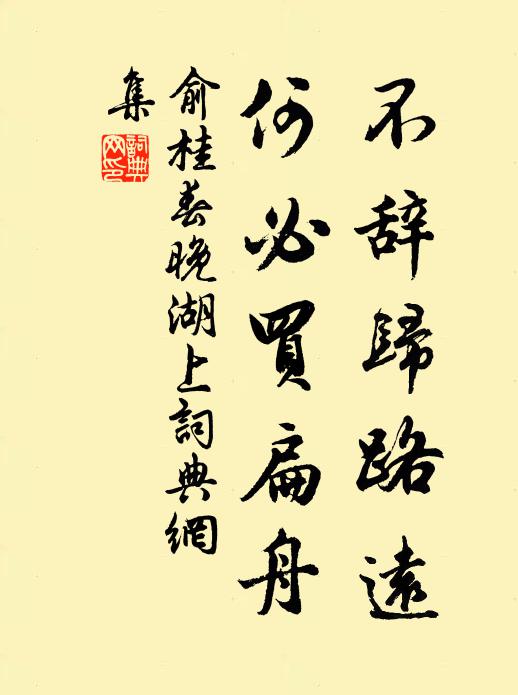 不辞歸路遠
何必買扁舟
俞桂春晚湖上詞典網
集
詞典
网印